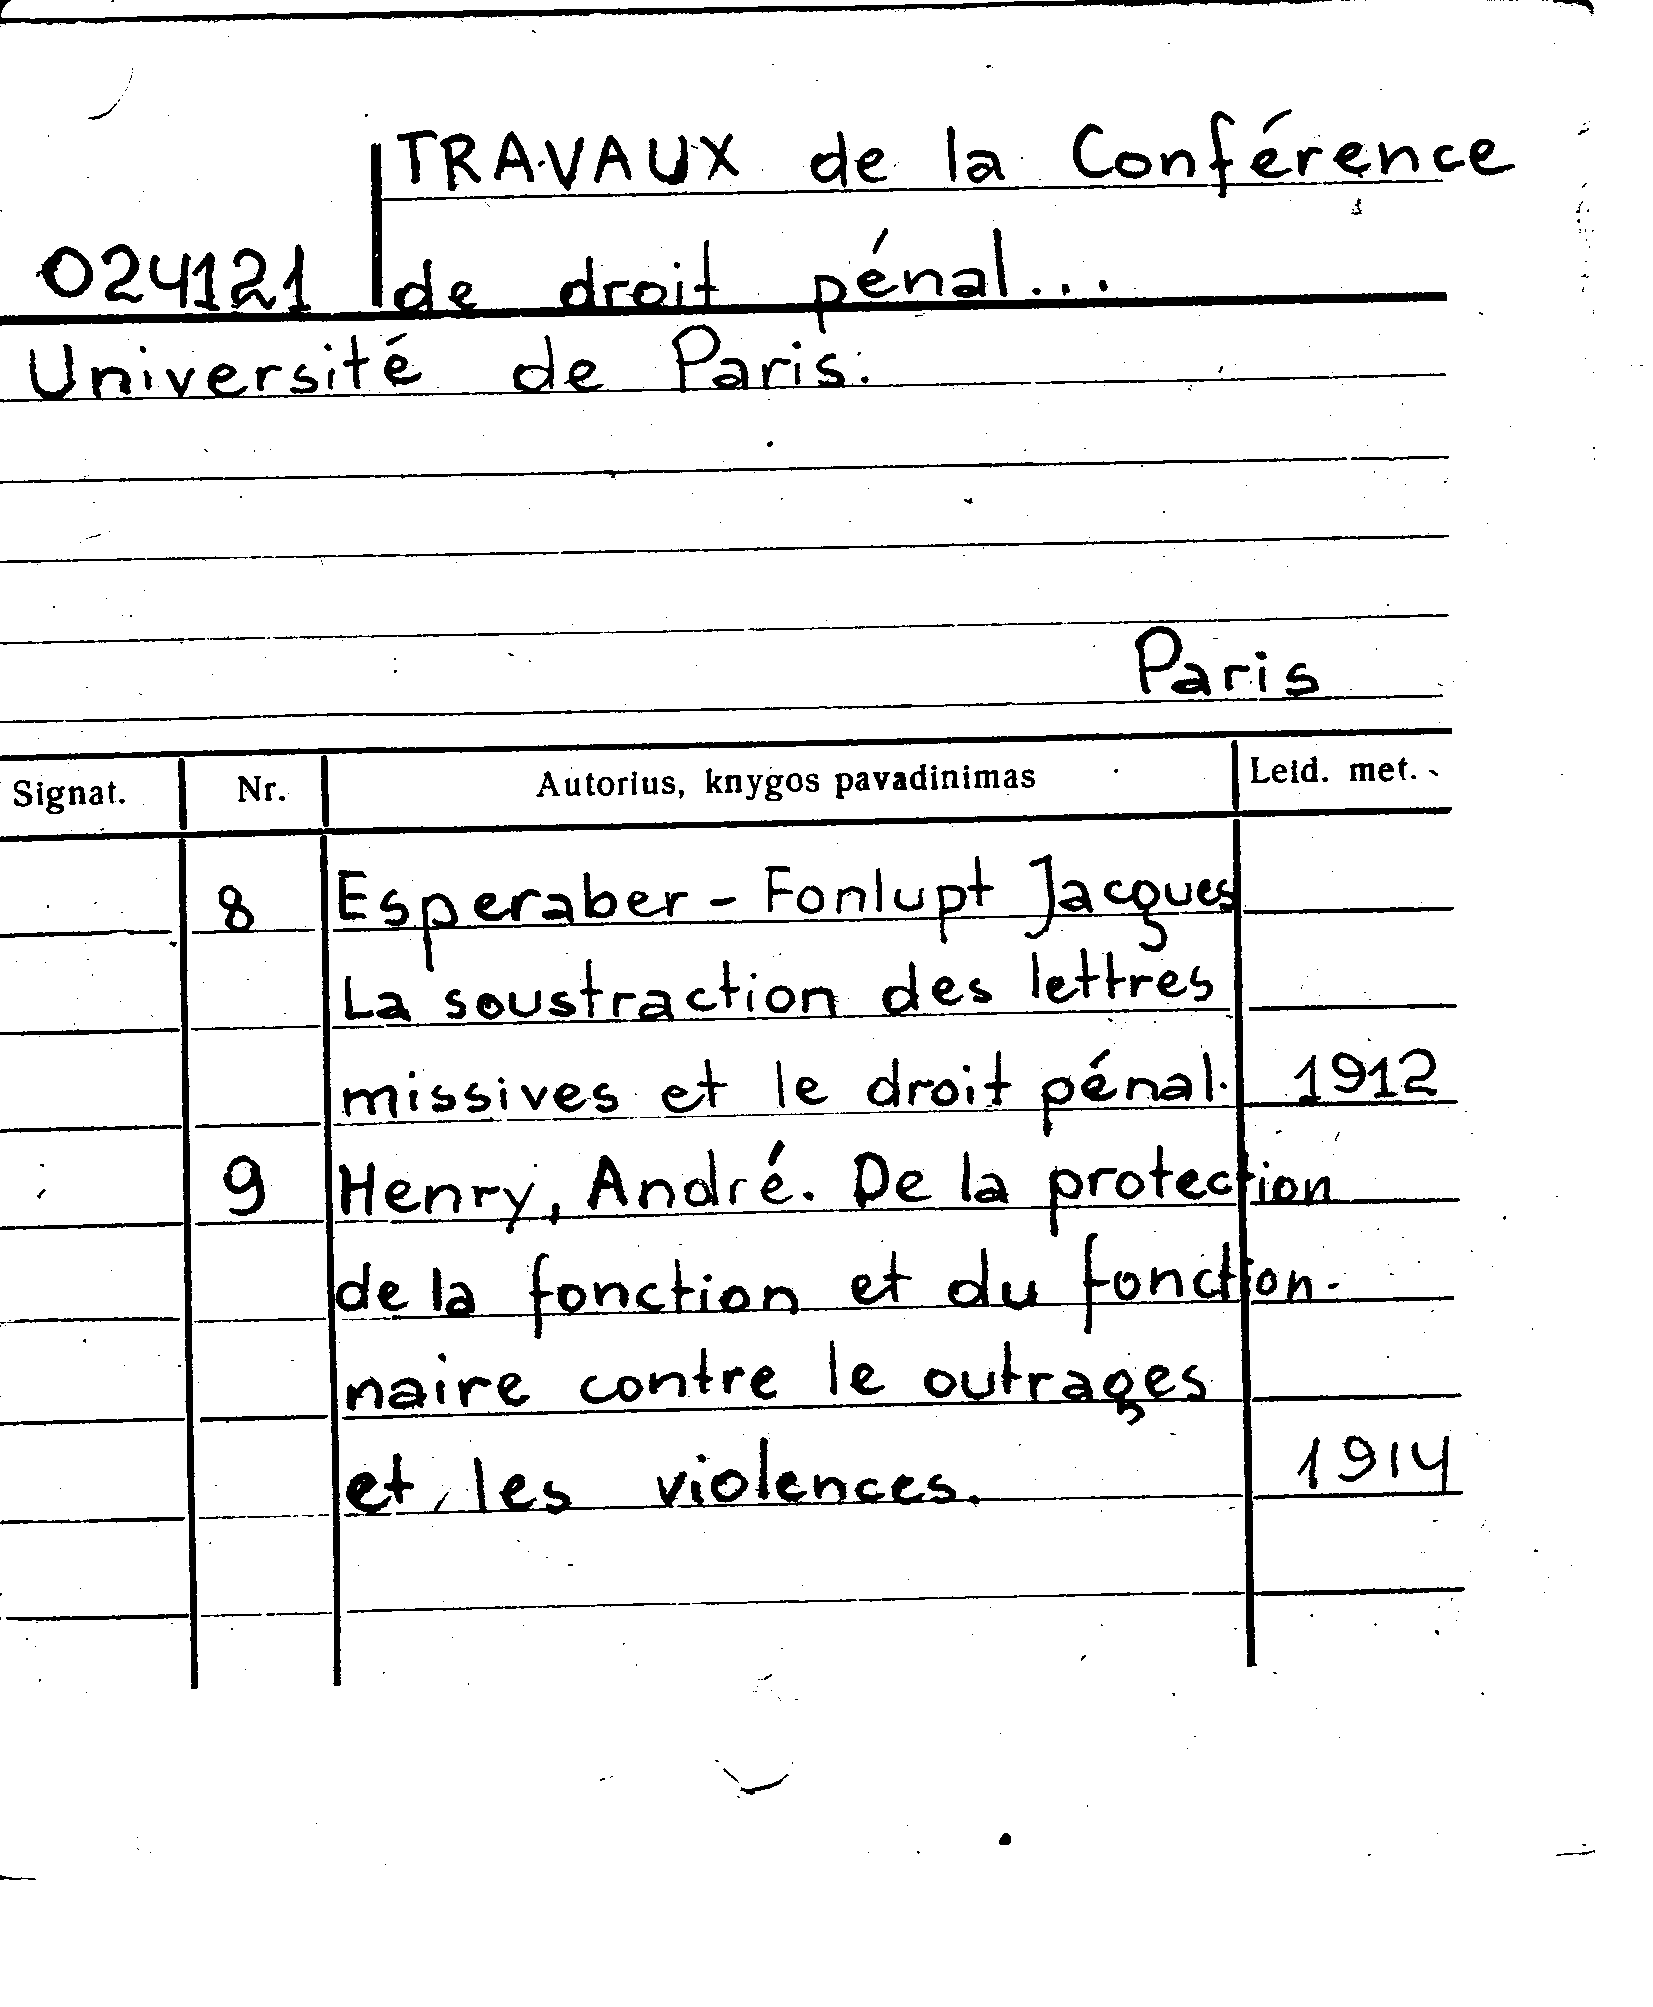 TRAVAUX de la Conférence
024121 de droit pénal...
Université de Paris.
Paris
Signat. Nr. Autorius, knygos pavadinimas Leid. met.
8 Esperaber - Fonlupt Jacques
La soustraction des lettres
missives et le droit pénal. 1912
9 Henry, André. De la protection
de la fonction et du fonction-
naire contre le outrages
et les violences. 1914